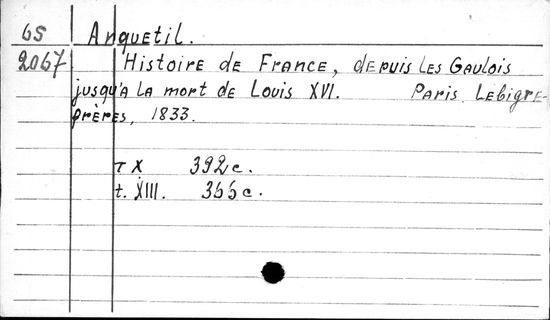 65 Anquetil.
2067 Histoire de France, depuis les Gaulois
jusqu'a la mort de Louis XVI. Paris Lebigre-
frères, 1833.
T X 392 c.
t. XIII. 366 c.